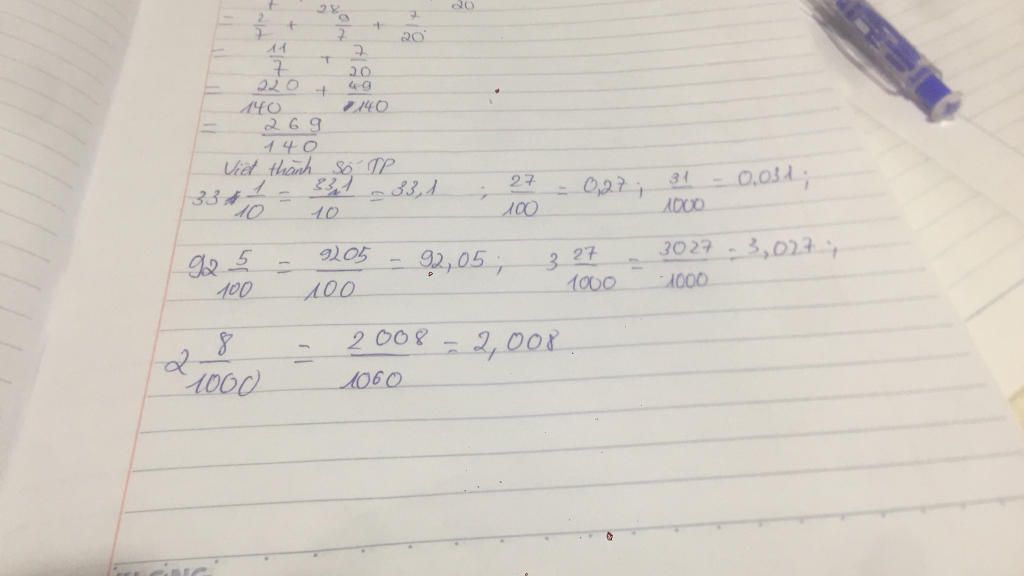 = 2/7 + 9/7 + 7/20
= 11/7 + 7/20
= 220/140 + 49/140
= 269/140
Viết thành Số TP
33 1/10 = 33,1/10 = 33,1 ; 27/100 = 0,27 ; 31/1000 = 0,031 ;
92 5/100 = 9205/100 = 92,05 ; 3 27/1000 = 3027/1000 = 3,027 ;
2 8/1000 = 2008/1000 = 2,008